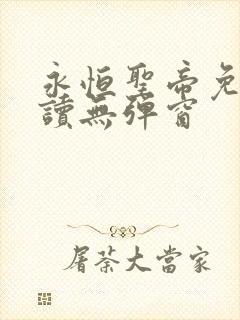 永恒聖帝免
讀無彈窗
屠荼大當家